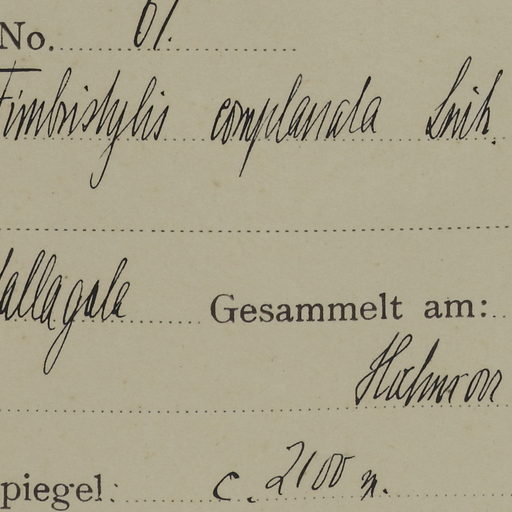 No. 61.
Fimbristylis complanata Link.
allagala Gesammelt am:
piegel: c. 2100 m.